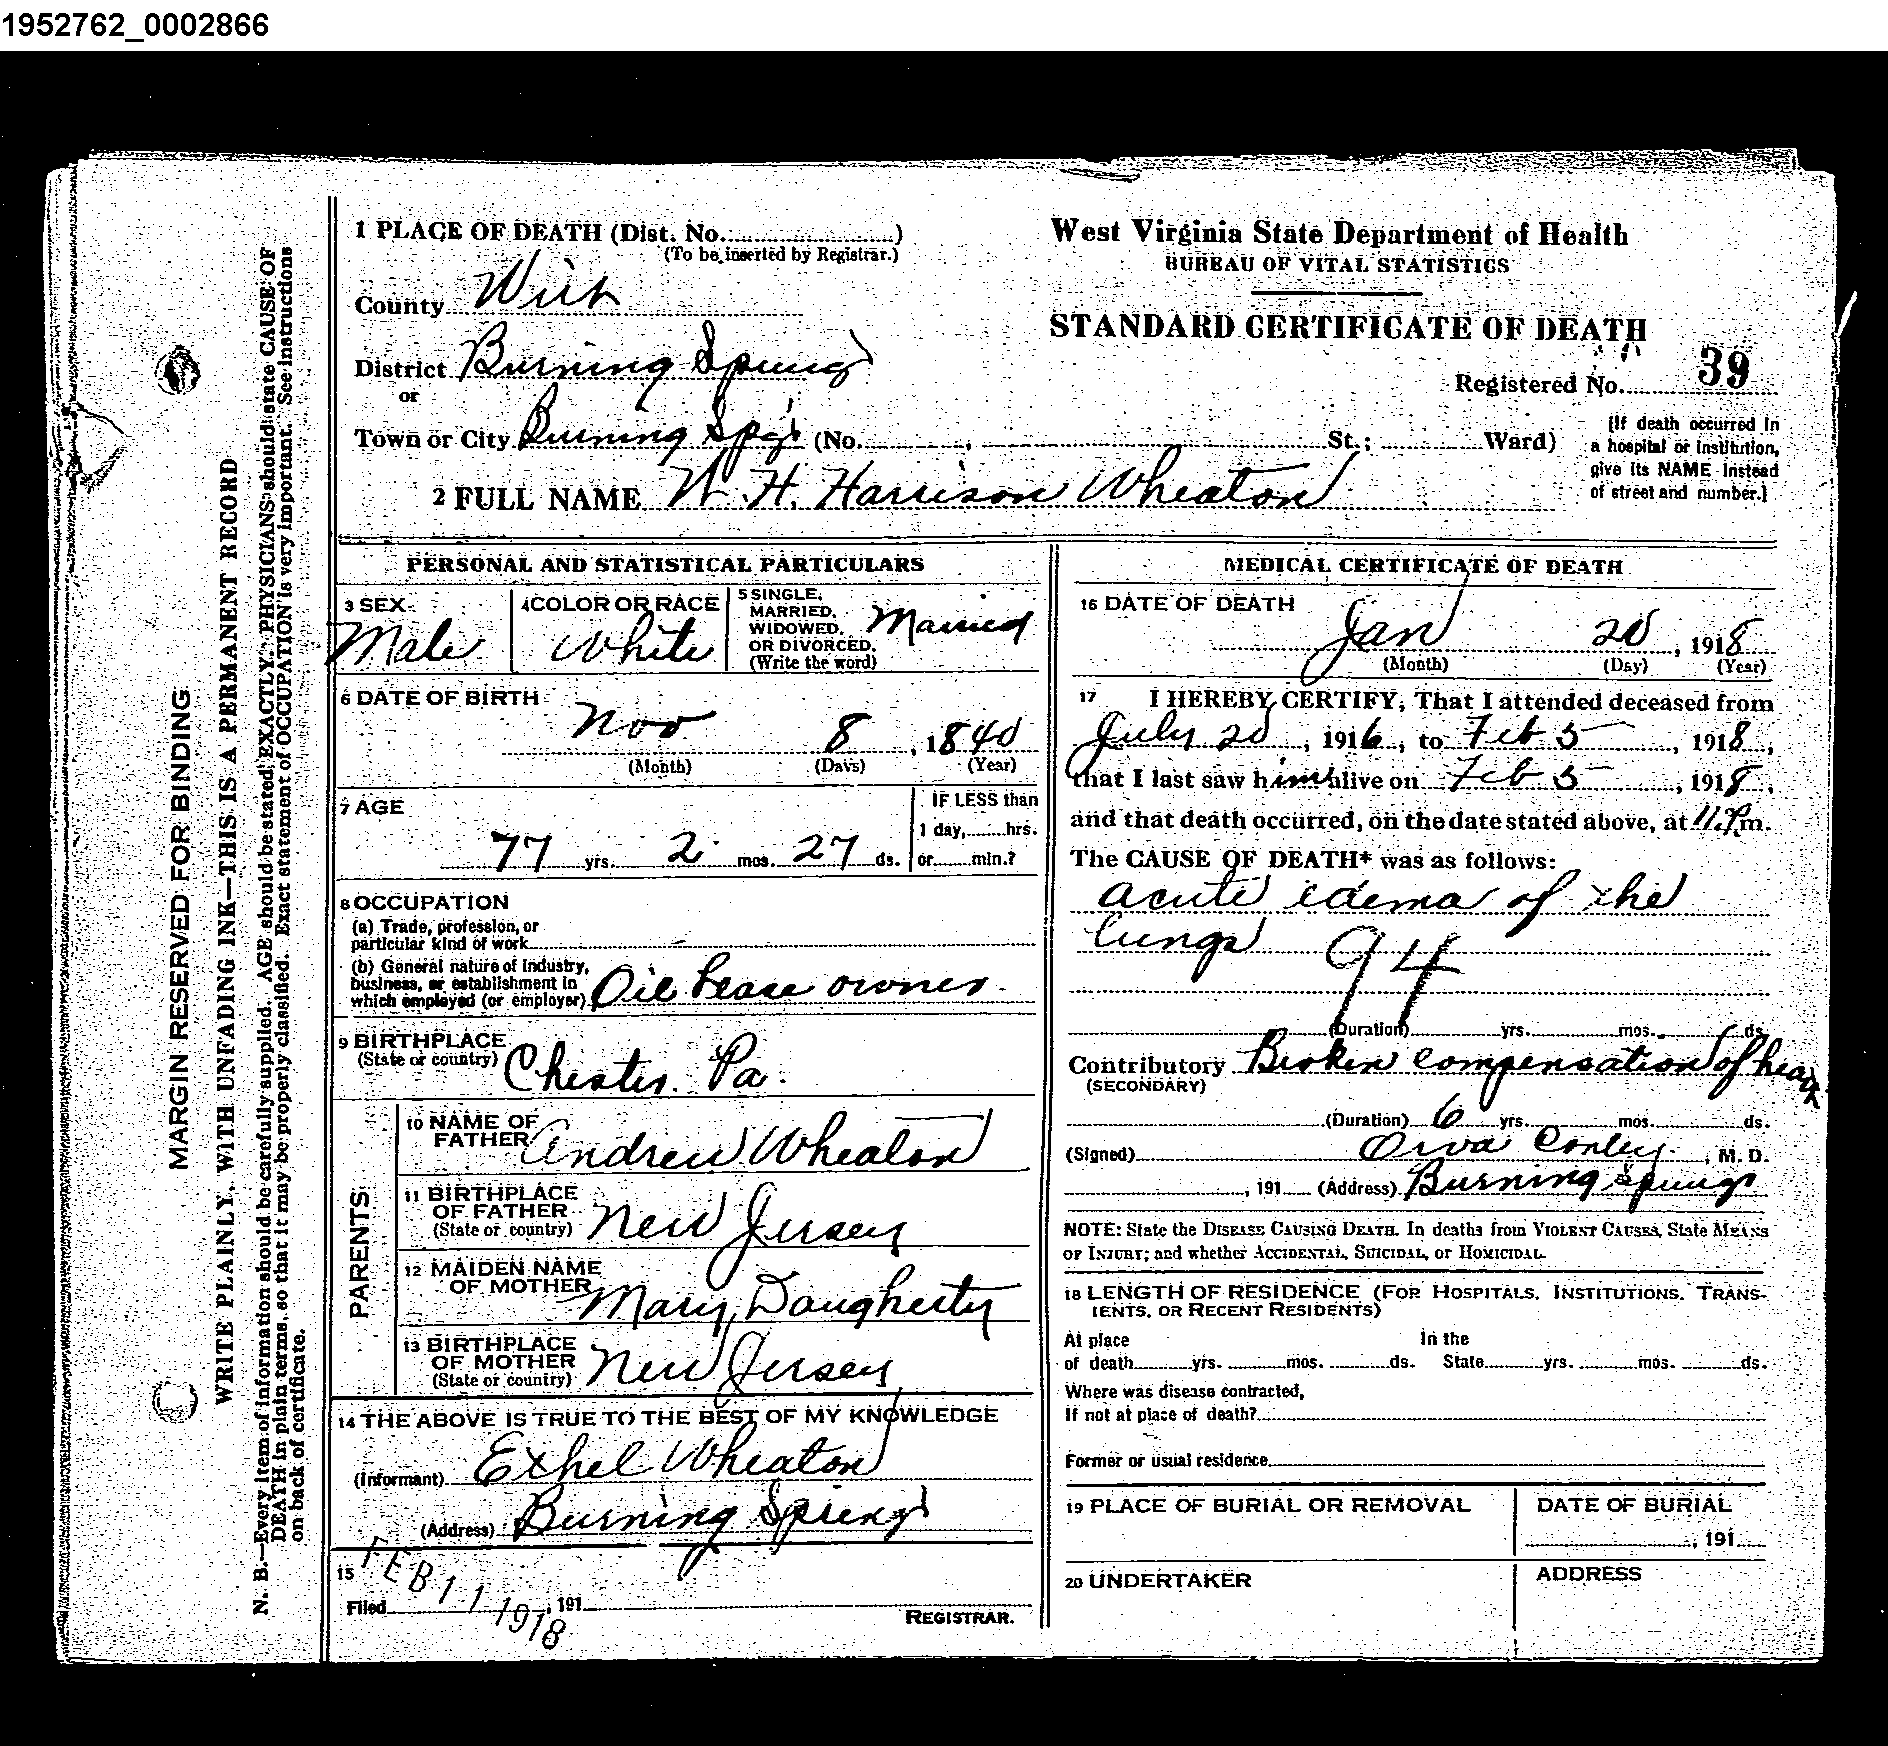 1952762_0002866
1 PLACE OF DEATH (Dist. No.)
(To be inserted by Registrar.)
County Wirt
District Burning Springs
or
Town or City Burning Spgs (No. , St.; Ward)
2 FULL NAME W. H. Harrison Wheaton
West Virginia State Department of Health
BUREAU OF VITAL STATISTICS
STANDARD CERTIFICATE OF DEATH
Registered No. 39
[If death occurred in
a hospital or institution,
give its NAME instead
of street and number.]
PERSONAL AND STATISTICAL PARTICULARS
3 SEX
Male
4 COLOR OR RACE
White
5 SINGLE,
MARRIED,
WIDOWED,
OR DIVORCED.
(Write the word)
Married
6 DATE OF BIRTH
Nov 8, 1840
(Month) (Days) (Year)
7 AGE
77 yrs. 2 mos. 27 ds.
IF LESS than
1 day, hrs.
or min.?
8 OCCUPATION
(a) Trade, profession, or
particular kind of work
(b) General nature of industry,
business, or establishment in
which employed (or employer) Oil Lease owner.
9 BIRTHPLACE
(State or country) Chester. Pa.
PARENTS
10 NAME OF
FATHER Andrew Wheaton
11 BIRTHPLACE
OF FATHER
(State or country) New Jersey
12 MAIDEN NAME
OF MOTHER Mary Daugherty
13 BIRTHPLACE
OF MOTHER
(State or country) New Jersey
14 THE ABOVE IS TRUE TO THE BEST OF MY KNOWLEDGE
(Informant) Ethel Wheaton
(Address) Burning Springs
15
Filed , 191
FEB 11 1918
REGISTRAR.
MEDICAL CERTIFICATE OF DEATH
16 DATE OF DEATH
Jan 20, 1918
(Month) (Day) (Year)
17 I HEREBY CERTIFY, That I attended deceased from
July 20, 1916, to Feb 5, 1918,
that I last saw him alive on Feb 5, 1918,
and that death occurred, on the date stated above, at 11 P.m.
The CAUSE OF DEATH* was as follows:
acute edema of the
lungs
94
(Duration) yrs. mos. ds.
Contributory Broken compensation of heart
(SECONDARY)
(Duration) 6 yrs. mos. ds.
(Signed) Orva Conley. , M. D.
, 191 (Address) Burning Springs
NOTE: State the DISEASE CAUSING DEATH. In deaths from VIOLENT CAUSES, State MEANS
OF INJURY; and whether ACCIDENTAL, SUICIDAL, or HOMICIDAL.
18 LENGTH OF RESIDENCE (FOR HOSPITALS, INSTITUTIONS, TRANS-
IENTS, OR RECENT RESIDENTS)
At place In the
of death yrs. mos. ds. State yrs. mos. ds.
Where was disease contracted,
If not at place of death?
Former or usual residence
19 PLACE OF BURIAL OR REMOVAL
DATE OF BURIAL
, 191
20 UNDERTAKER
ADDRESS
MARGIN RESERVED FOR BINDING
WRITE PLAINLY, WITH UNFADING INK—THIS IS A PERMANENT RECORD
N. B.—Every item of information should be carefully supplied. AGE should be stated EXACTLY. PHYSICIANS should state CAUSE OF
DEATH in plain terms, so that it may be properly classified. Exact statement of OCCUPATION is very important. See instructions
on back of certificate.